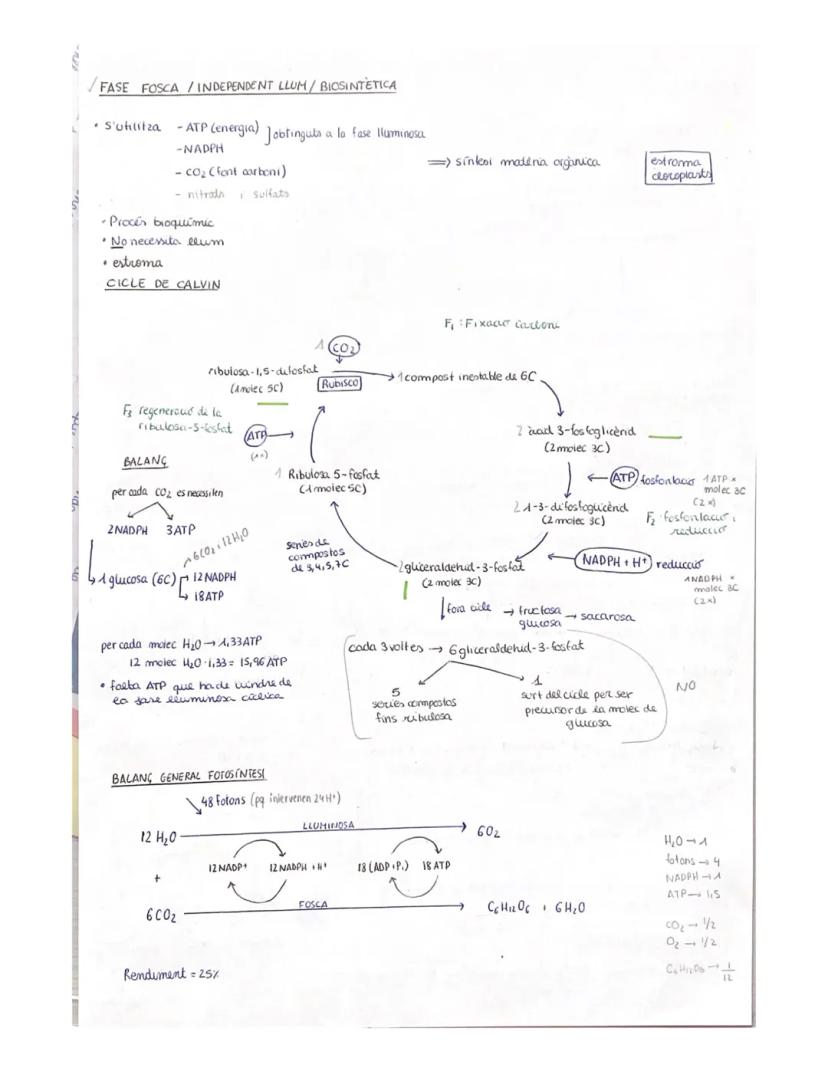 FASE FOSCA / INDEPENDENT LLUM / BIOSINTÈTICA
• S'utilitza - ATP (energia) ] obtinguts a la fase lluminosa
- NADPH
- CO₂ (font carboni)
- nitrats i sulfats
=> síntesi matèria orgànica
estroma
cloroplasts
• Procés bioquímic
• No necessita llum
• estroma
CICLE DE CALVIN
F₁: Fixació carboni
1 CO₂
ribulosa-1,5-difosfat
(1 molec 5C)
Rubisco
1 compost inestable de 6C
F₃ regeneració de la
ribulosa-5-fosfat
ATP
(1x)
2 àcid 3-fosfoglicèrid
(2 molec 3C)
ATP fosforilació
1 ATP x
molec 3C
(2x)
BALANÇ
per cada CO₂ es necessiten
2NADPH 3ATP
6CO₂ + 12H₂O
1 glucosa (6C)
12 NADPH
18 ATP
1 Ribulosa 5-fosfat
(1 molec 5C)
2 1-3-difosfoglicèrid
(2 molec 3C)
F₂ fosforilació i
reducció
sèries de
compostos
de 3,4,5,7C
2 gliceraldehid-3-fosfat
(2 molec 3C)
NADPH + H⁺ reducció
1 NADPH x
molec 3C
(2x)
fora cicle → fructosa
glucosa → sacarosa
per cada molec H₂O → 1,33 ATP
12 molec H₂O · 1,33 = 15,96 ATP
• falta ATP que ha de vindre de
la fase lluminosa cíclica
cada 3 voltes → 6 gliceraldehid-3-fosfat
5
sèries compostos
fins ribulosa
1
surt del cicle per ser
precursor de la molec de
glucosa
NO
BALANÇ GENERAL FOTOSÍNTESI
48 fotons (pq intervenen 24H⁺)
12 H₂O
LLUMINOSA
6O₂
+
12 NADP⁺ 12 NADPH + H⁺ 18 (ADP + Pᵢ) 18 ATP
6CO₂
FOSCA
C₆H₁₂O₆ + 6H₂O
Rendiment = 25%
H₂O → 1
fotons → 4
NADPH → 1
ATP → 1,5
CO₂ → 1/2
O₂ → 1/2
C₆H₁₂O₆ → 1/12